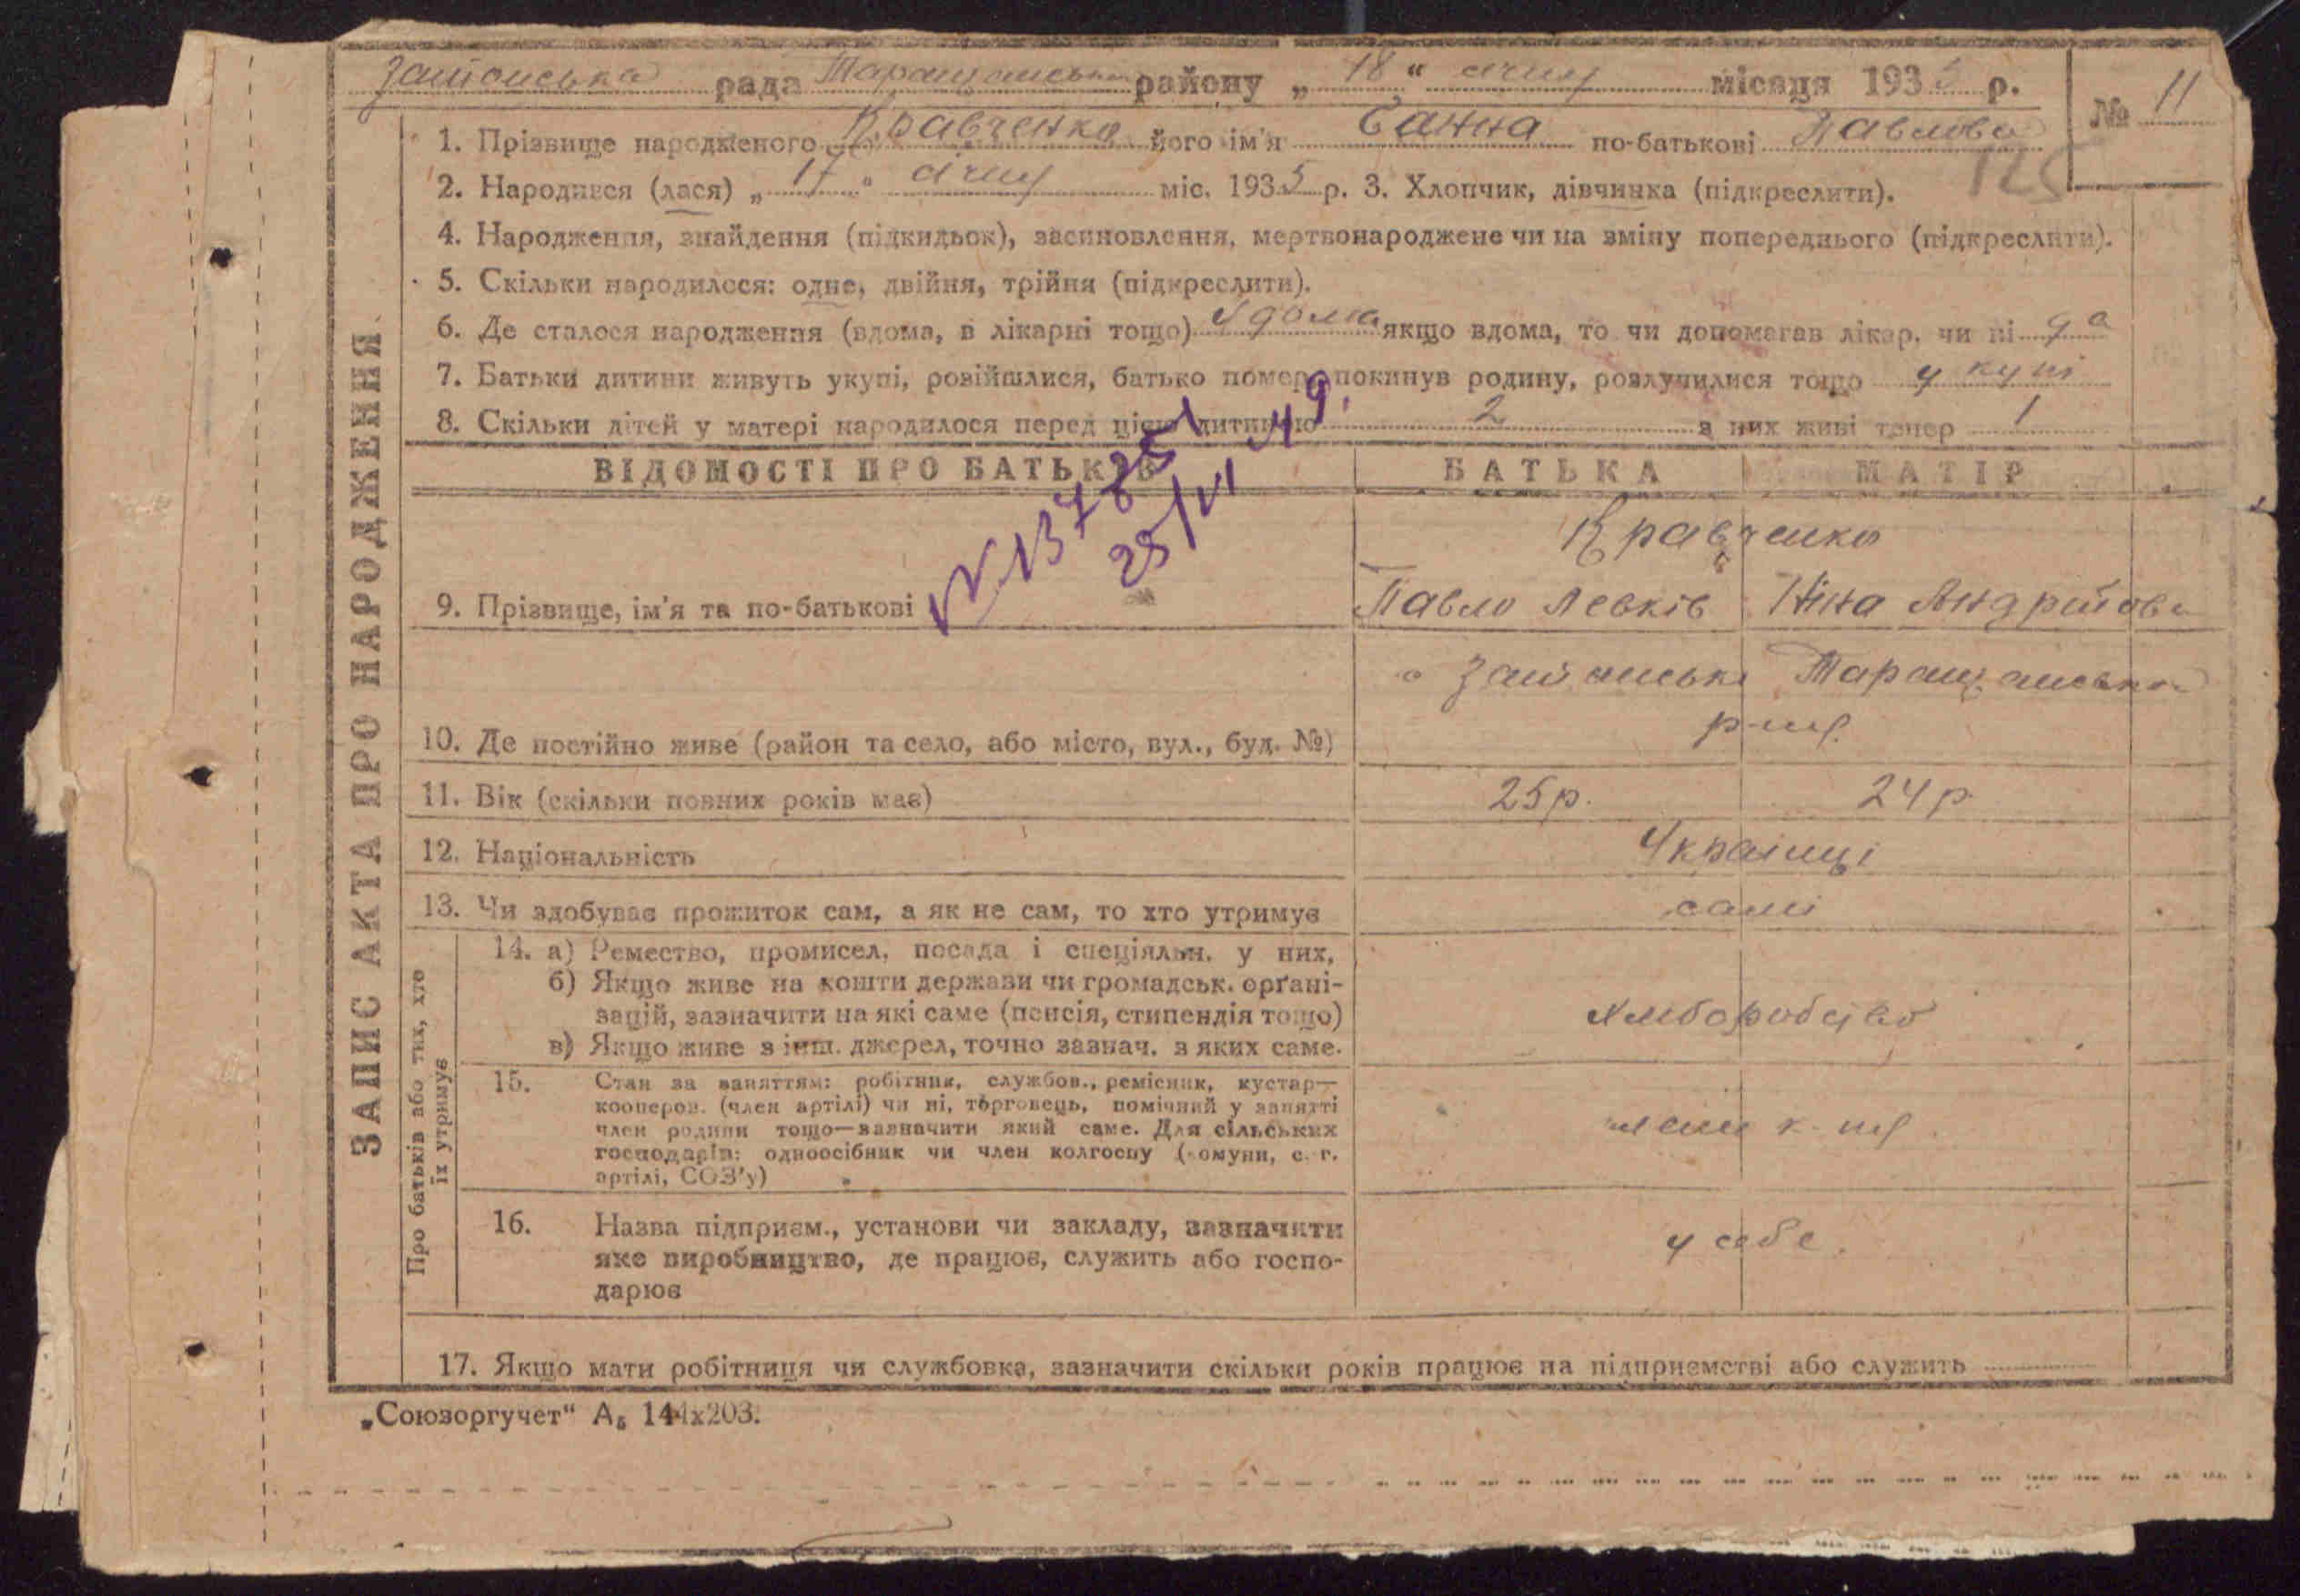 рада району „ 18 “ січня місяця 193 р. № 11
1. Прізвище народженого Кравченко його ім'я Ганна по-батькові Павлова
125
2. Народився (лася) „ 17 “ січня міс. 1935 р. 3. Хлопчик, дівчинка (підкреслити).
4. Народження, знайдення (підкидьок), засиновлення, мертвонароджене чи на зміну попереднього (підкреслити).
5. Скільки народилося: одне, двійня, трійня (підкреслити).
6. Де сталося народження (вдома, в лікарні тощо) удома якщо вдома, то чи допомагав лікар, чи ні да
7. Батьки дитини живуть укупі, розійшлися, батько помер, покинув родину, розлучилися тощо у купі
8. Скільки дітей у матері народилося перед цією дитиною 2 з них живі тепер 1
ВІДОМОСТІ ПРО БАТЬКІВ БАТЬКА МАТІР
Кравченко
9. Прізвище, ім'я та по-батькові Павло Левків Ніна Андрійова
10. Де постійно живе (район та село, або місто, вул., буд. №)
11. Вік (скільки повних років має) 25 р. 24 р
12. Національність Українці
13. Чи здобуває прожиток сам, а як не сам, то хто утримує самі
14. а) Ремество, промисел, посада і спеціяльн. у них,
б) Якщо живе на кошти держави чи громадськ. орґані-
зацій, зазначити на які саме (пенсія, стипендія тощо) хліборобство
в) Якщо живе з інш. джерел, точно зазнач. з яких саме.
15. Стан за заняттям: робітник, службов., ремісник, кустар—
кооперов. (член артілі) чи ні, торговець, помічний у занятті
член родини тощо—зазначити який саме. Для сільських
господарів: одноосібник чи член колгоспу (комуни, с. г.
артілі, СОЗ'у)
16. Назва підприєм., установи чи закладу, зазначити
яке виробництво, де працює, служить або госпо- у себе.
дарює
17. Якщо мати робітниця чи службовка, зазначити скільки років працює на підприємстві або служить
„Союзоргучет“ А₅ 144х203.
ЗАПИС АКТА ПРО НАРОДЖЕННЯ
Про батьків або тих, хто
їх утримує